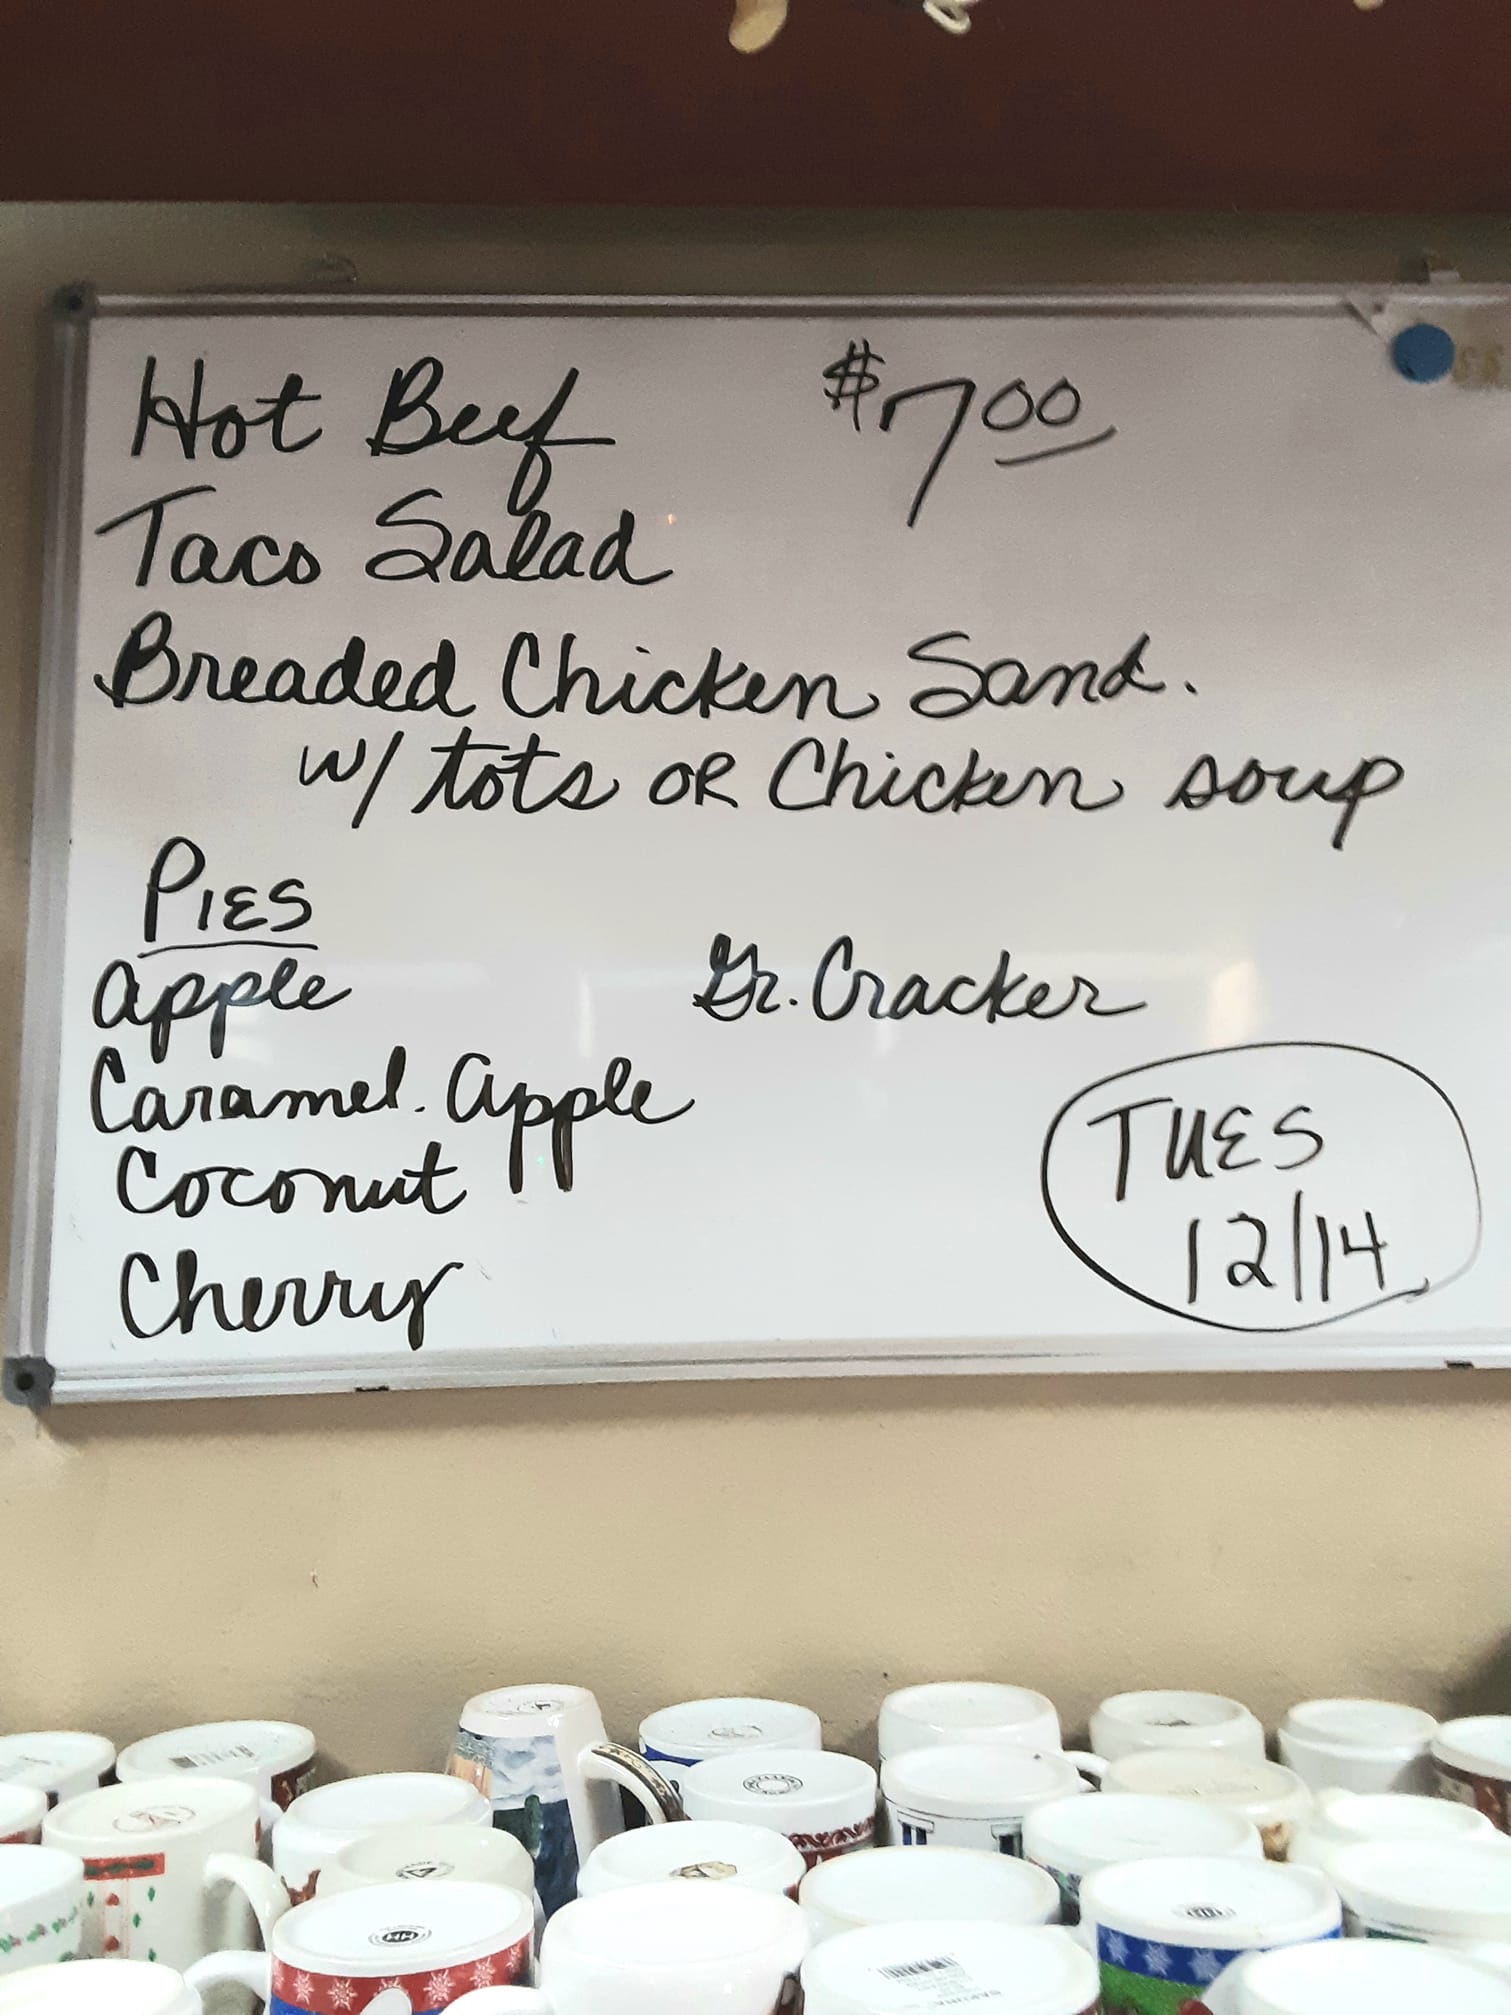 Hot Beef $7.00
Taco Salad
Breaded Chicken Sand.
w/ tots OR Chicken soup
PIES
Apple Gr. Cracker
Caramel. Apple
Coconut
Cherry
TUES
12/14